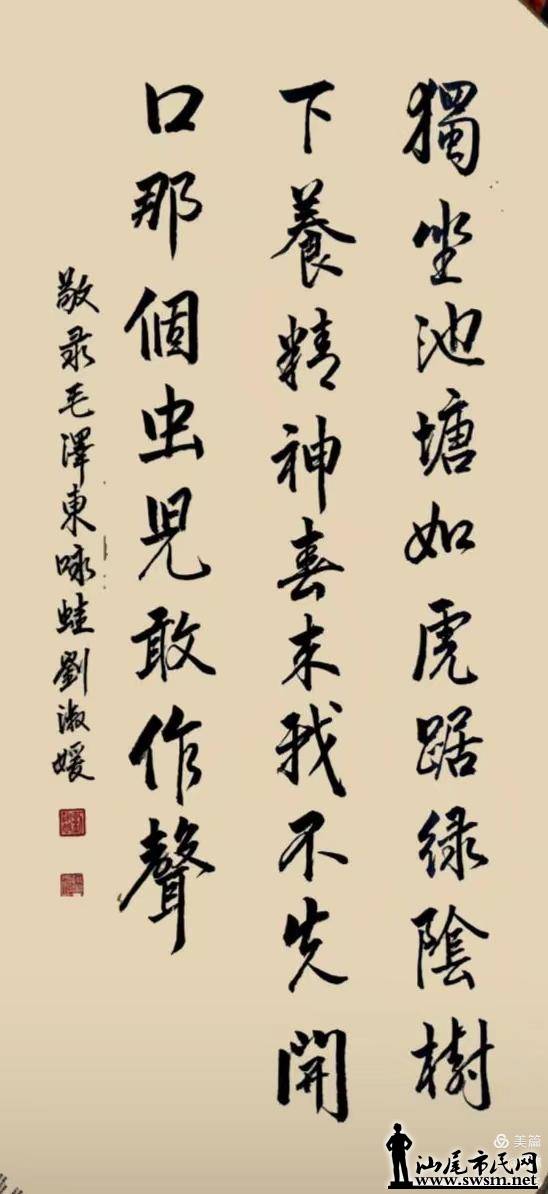 獨坐池塘如虎踞綠陰樹
下養精神喜来我不先開
口那個虫児敢作聲
敬录毛澤東咏蛙劉淑媛
美篇
汕尾市民网
www.swsm.net